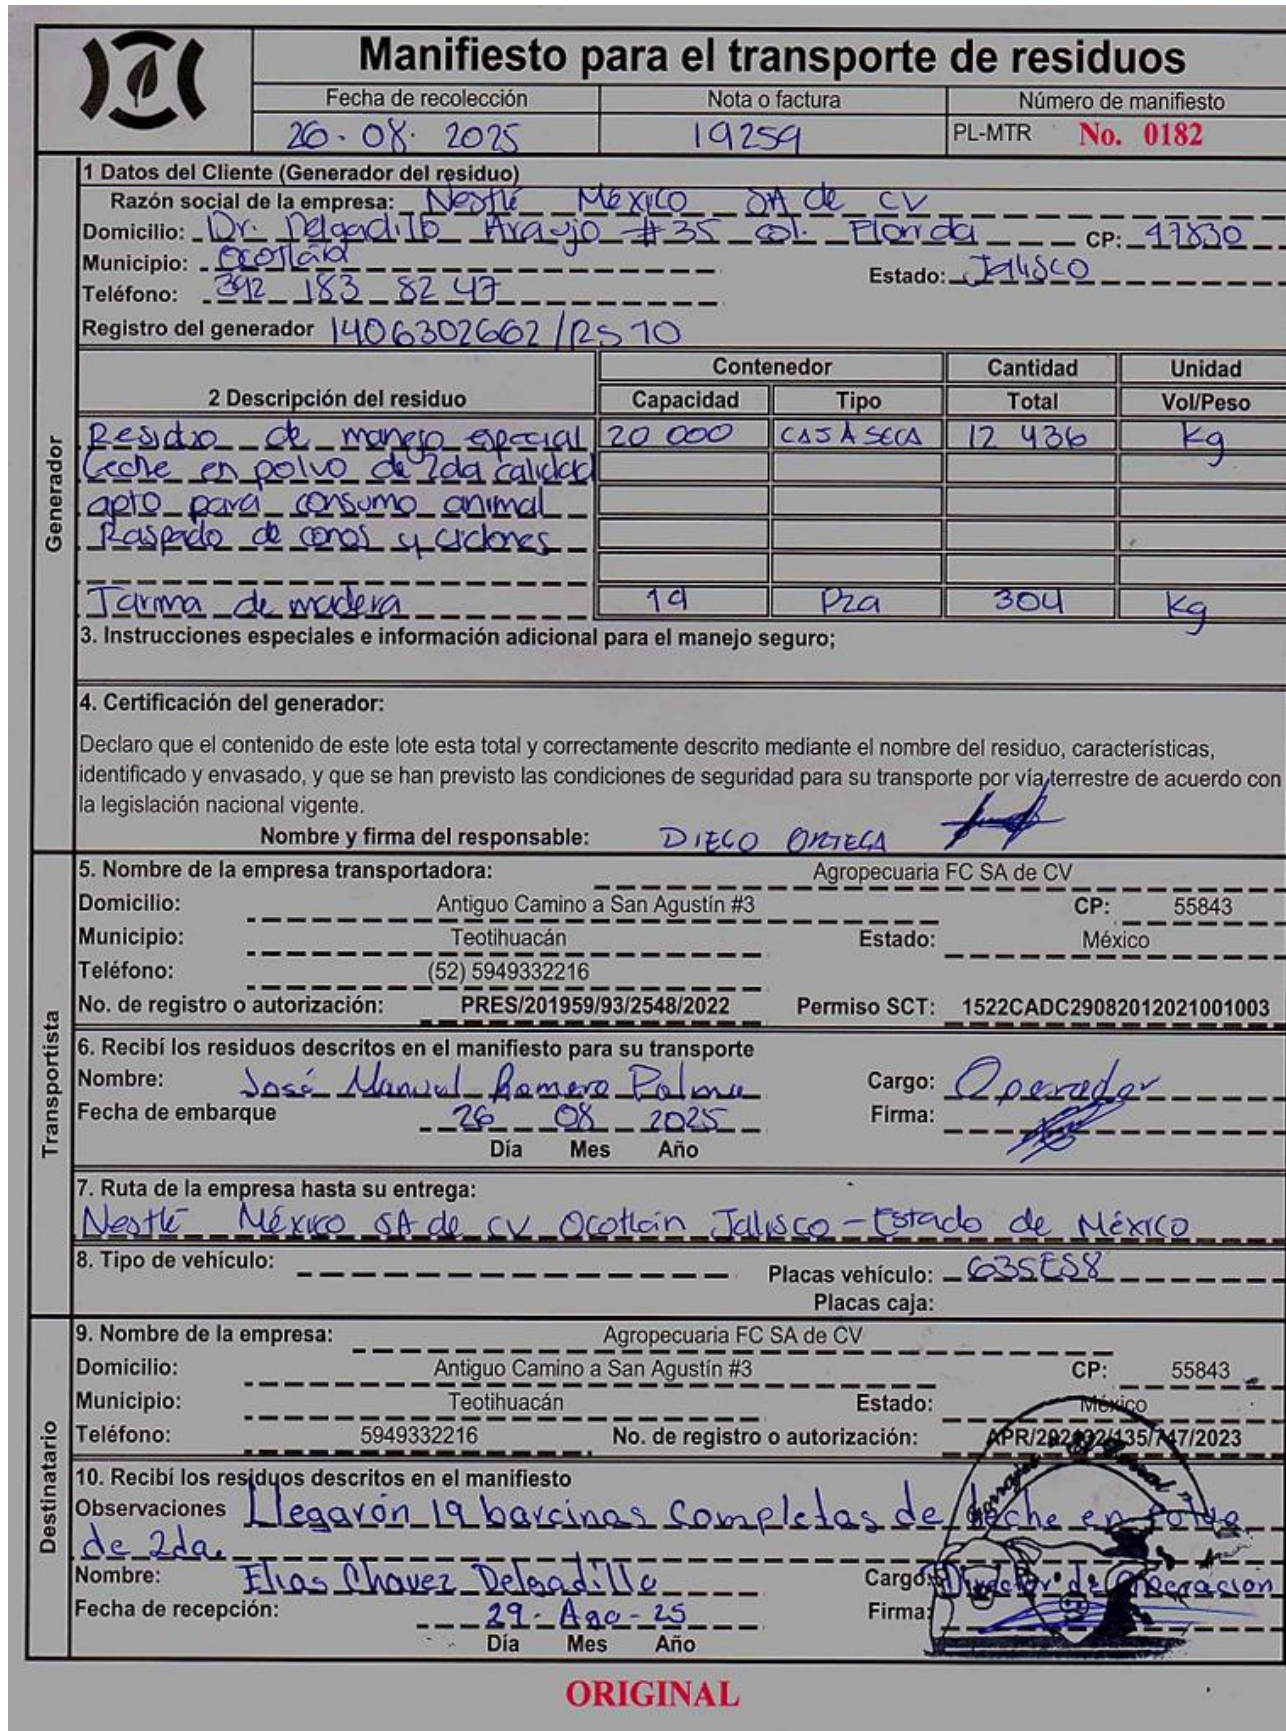 Manifiesto para el transporte de residuos
Fecha de recolección Nota o factura Número de manifiesto
26 · 08 · 2025 19259 PL-MTR No. 0182
Generador
1 Datos del Cliente (Generador del residuo)
Razón social de la empresa: Nestlé México SA de CV
Domicilio: Dr. Delgadillo Araujo #35 col. Florida CP: 47830
Municipio: Ocotlán Estado: Jalisco
Teléfono: 392 183 82 47
Registro del generador 1406302662/RS10
2 Descripción del residuo Contenedor Cantidad Unidad
Capacidad Tipo Total Vol/Peso
Residuo de manejo especial 20 000 CAJA SECA 12 436 Kg
Leche en polvo de 2da calidad
apto para consumo animal
Raspado de conos y ciclones
Tarima de madera 19 Pza 304 Kg
3. Instrucciones especiales e información adicional para el manejo seguro;
4. Certificación del generador:
Declaro que el contenido de este lote esta total y correctamente descrito mediante el nombre del residuo, características,
identificado y envasado, y que se han previsto las condiciones de seguridad para su transporte por vía terrestre de acuerdo con
la legislación nacional vigente.
Nombre y firma del responsable: DIEGO ORTEGA
Transportista
5. Nombre de la empresa transportadora: Agropecuaria FC SA de CV
Domicilio: Antiguo Camino a San Agustín #3 CP: 55843
Municipio: Teotihuacán Estado: México
Teléfono: (52) 5949332216
No. de registro o autorización: PRES/201959/93/2548/2022 Permiso SCT: 1522CADC29082012021001003
6. Recibí los residuos descritos en el manifiesto para su transporte
Nombre: José Manuel Romero Palma Cargo: Operador
Fecha de embarque 26 08 2025 Firma:
Día Mes Año
7. Ruta de la empresa hasta su entrega:
Nestlé México SA de CV Ocotlán Jalisco - Estado de México
8. Tipo de vehículo: Placas vehículo: 635ES8
Placas caja:
Destinatario
9. Nombre de la empresa: Agropecuaria FC SA de CV
Domicilio: Antiguo Camino a San Agustín #3 CP: 55843
Municipio: Teotihuacán Estado: México
Teléfono: 5949332216 No. de registro o autorización: /135/747/2023
10. Recibí los residuos descritos en el manifiesto
Observaciones Llegarón 19 barcinas Completas de Leche en Polvo
de 2da.
Nombre: Elias Chavez Delgadillo Cargo: Director de Operacion
Fecha de recepción: 29 - Ago - 25 Firma:
Día Mes Año
ORIGINAL